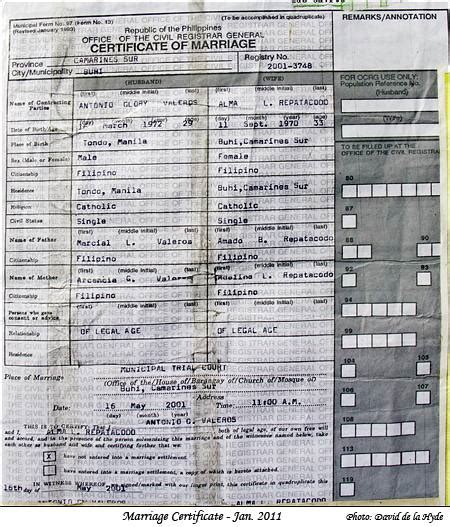 Municipal Form No. 97 (Form No. 13) (To be accomplished in quadruplicate) REMARKS/ANNOTATION
(Revised January 1993) Republic of the Philippines
OFFICE OF THE CIVIL REGISTRAR GENERAL
CERTIFICATE OF MARRIAGE
Province CAMARINES SUR Registry No.
City/Municipality BUHI 2001-3748
(HUSBAND) (WIFE) FOR OCRG USE ONLY:
Population Reference No.
(Husband)
Name of Contracting Parties (first) (middle initial) (last) (first) (middle initial) (last)
ANTONIO GLORY VALEROS ALMA L. REPATACODO
(Wife)
(day) (month) (year) (age) (day) (month) (year) (age)
Date of Birth/Age March 1972 29 11 Sept. 1970 33
Place of Birth Tondo, Manila Buhi, Camarines Sur TO BE FILLED UP AT THE
OFFICE OF THE CIVIL REGISTRAR
Sex (Male or Female) Male Female
Citizenship Filipino Filipino
Residence Tondo, Manila Buhi, Camarines Sur
Religion Catholic Catholic
Civil Status Single Single 87
(first) (middle initial) (last) (first) (middle initial) (last)
Name of Father Marcial L. Valeros Amado B. Repatacodo
88 90
Citizenship Filipino Filipino
(first) (middle initial) (last) (first) (middle initial) (last) 92 93
Name of Mother G. Repatacodo
Citizenship Filipino Filipino
94
Persons who gave consent or advice
99
Relationship OF LEGAL AGE OF LEGAL AGE
Residence
104 105
MUNICIPAL TRIAL COURT
Place of Marriage (Office of the/House of/Barangay of/Church of/Mosque of)
Buhi, Camarines Sur 106 107
Address
Date: 16 May 2001 Time: 11:00 A.M.
(day) (month) (year)
108
THIS IS TO CERTIFY: That I ANTONIO G. VALEROS
and I, ALMA L. REPATACODO both of legal age, of our own free will
and accord, and in the presence of the person solemnizing this marriage and of the witnesses named below, take
each other as husband and wife and certifying further that we:
X have not entered into a marriage settlement. 113
have entered into a marriage settlement, a copy of which is hereto attached.
IN WITNESS WHEREOF, we signed/marked with our fingerprint, this certificate in quadruplicate this 119
16th day of May 2001
Marriage Certificate - Jan. 2011 Photo: David de la Hyde